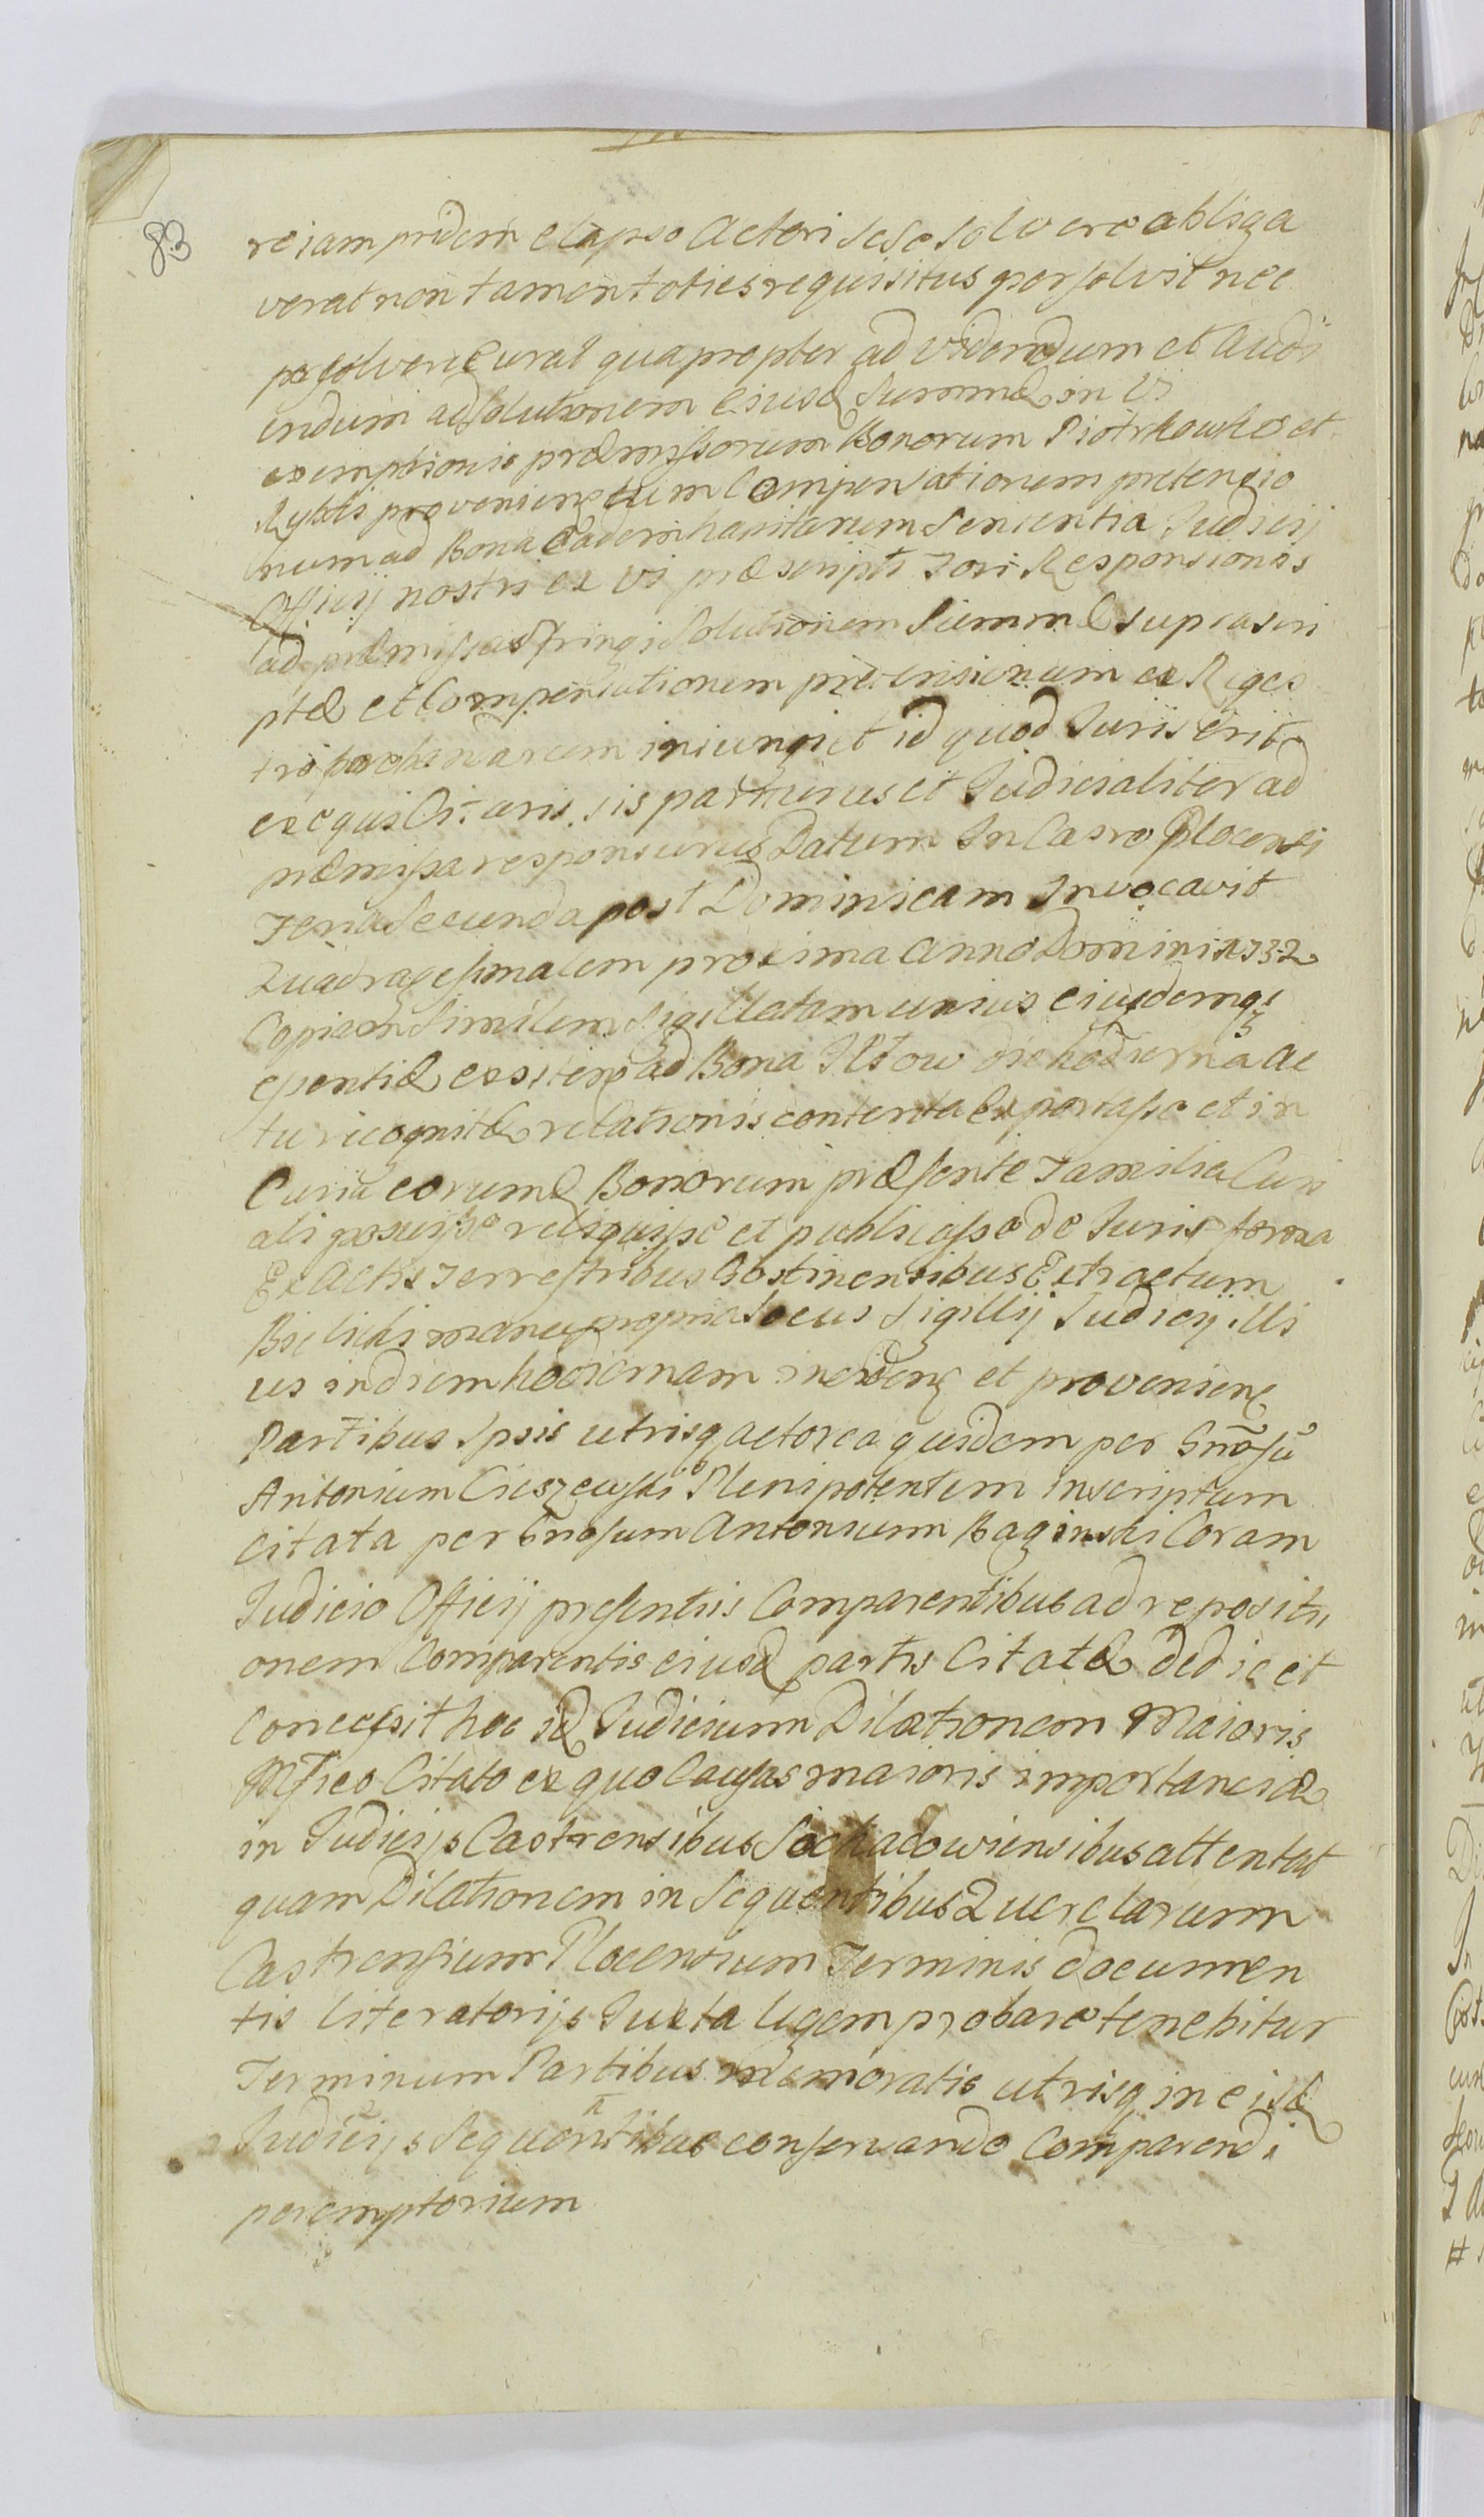 83
re iam pridem elapso Actori sese solvere obliga
verat non tamen toties requisitus persolvit nec
persolvere Curat quapropter ad videndum et Audi
endum ad solutionem eiusd Summæ in Vi
exemptionis præmissorum Bonorum Piotrkowko et
provenien cum Compensationem pretensio
num ad Bona eadem habitarum Sententia Judicij
Officij nostri ex vi præscripti Fori Responsionis
ad præmissa stringi Solutionem Summæ suprascri
ptæ et Compensationem pretensionum ex Reges
tro iniungi et id quod Juris erit
exequi Citaris sis pariturus et Judicialiter ad
præmissa responsurus Datum In Casro Plocensi
Feria Secunda post Dominicam Invocavit
Quadragesimalem proxima Anno Domini 1732
Copiam Similem Sigillatam unius eiusdemq
ad Bona Iłow die hodierna ac
tu recognitæ relationis contenta exportasse et in
Curia eorumd Bonorum præsente Familia Curi
ali posuisse reliquisse et publicasse de Juris forma
Ex Actis Terrestribus Gostinensibus Extractum
Bielicki manu propria Locus Sigillij Judicij illi
us in diem hodiernam inciden et provenien
Partibus Ipsis utrisq actorea quidem per Gnosu
Antonium Cieszewski Plenipotentem Inscriptum
citata per Gnosum Antonium Baginski Coram
Judicio Officij presentis Comparentibus ad repositi
onem Comparentis eiusd partis Citatæ dedit et
Concessit hoc id Judicium Dilationem Maioris
Mfico Citato ex quo Causas maioris importanciæ
in Judicijs Castrensibus Sochadowiensibus attentat
quam Dilationem in Sequentibus Querelarum
Castrensium Plocensium Terminis documen
tis literatorijs Juxta legem probare tenebitur
Terminum Partibus memoratis utrisq in eisd
Judicijs Sequentibus conservando Comparendi
peremptorium